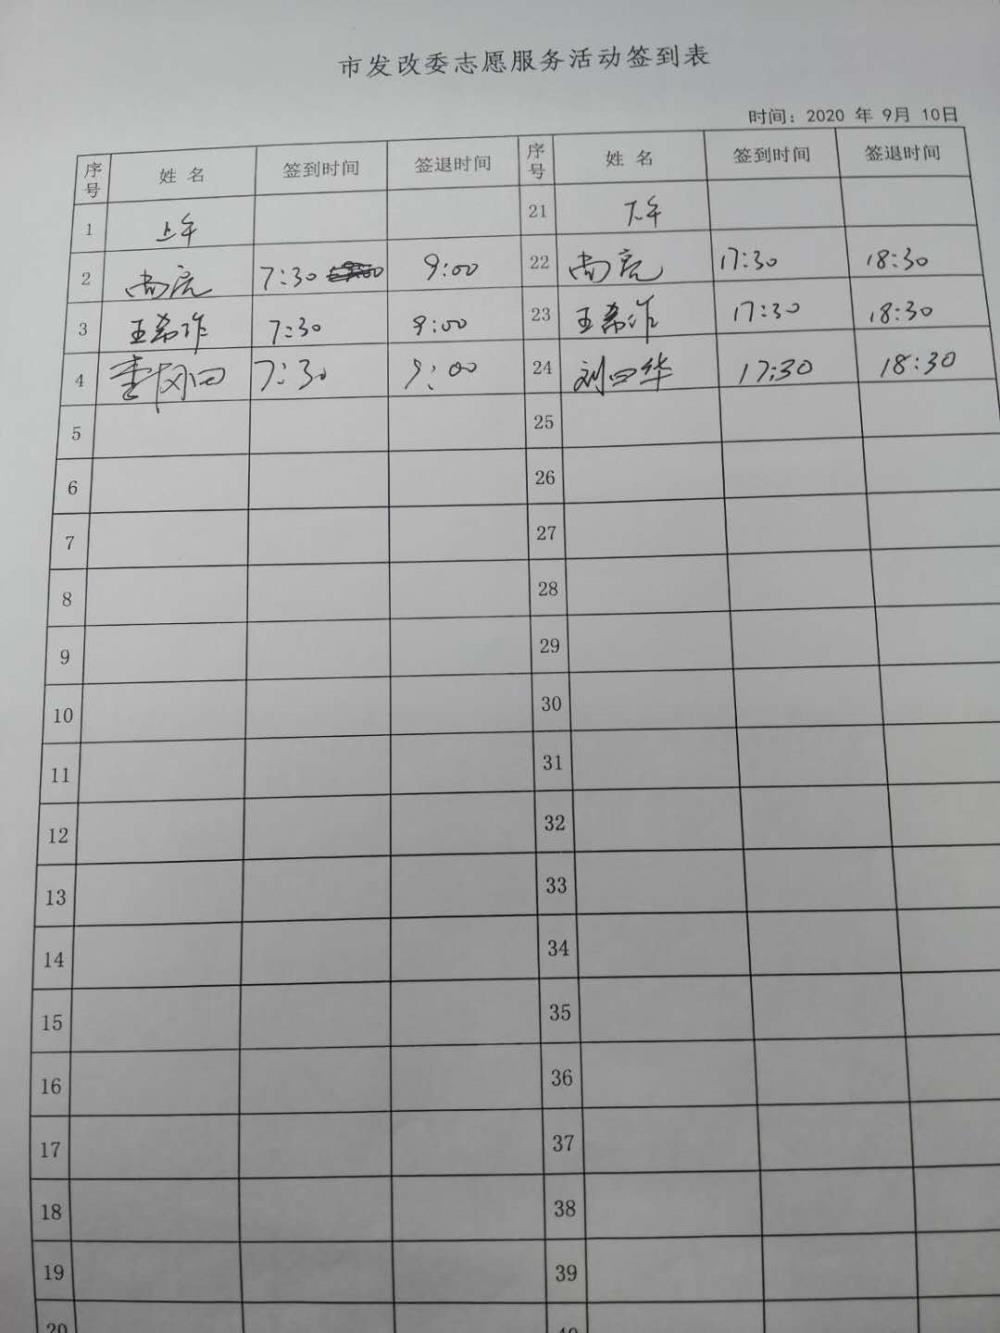 市发改委志愿服务活动签到表
时间：2020 年 9月 10日
序号 姓 名 签到时间 签退时间 序号 姓 名 签到时间 签退时间
1 上午 21 下午
2 尚亮 7:30 9:00 22 尚亮 17:30 18:30
3 王希 7:30 9:00 23 王希 17:30 18:30
4 7:30 9:00 24 刘四华 17:30 18:30
5 25
6 26
7 27
8 28
9 29
10 30
11 31
12 32
13 33
14 34
15 35
16 36
17 37
18 38
19 39
20 40